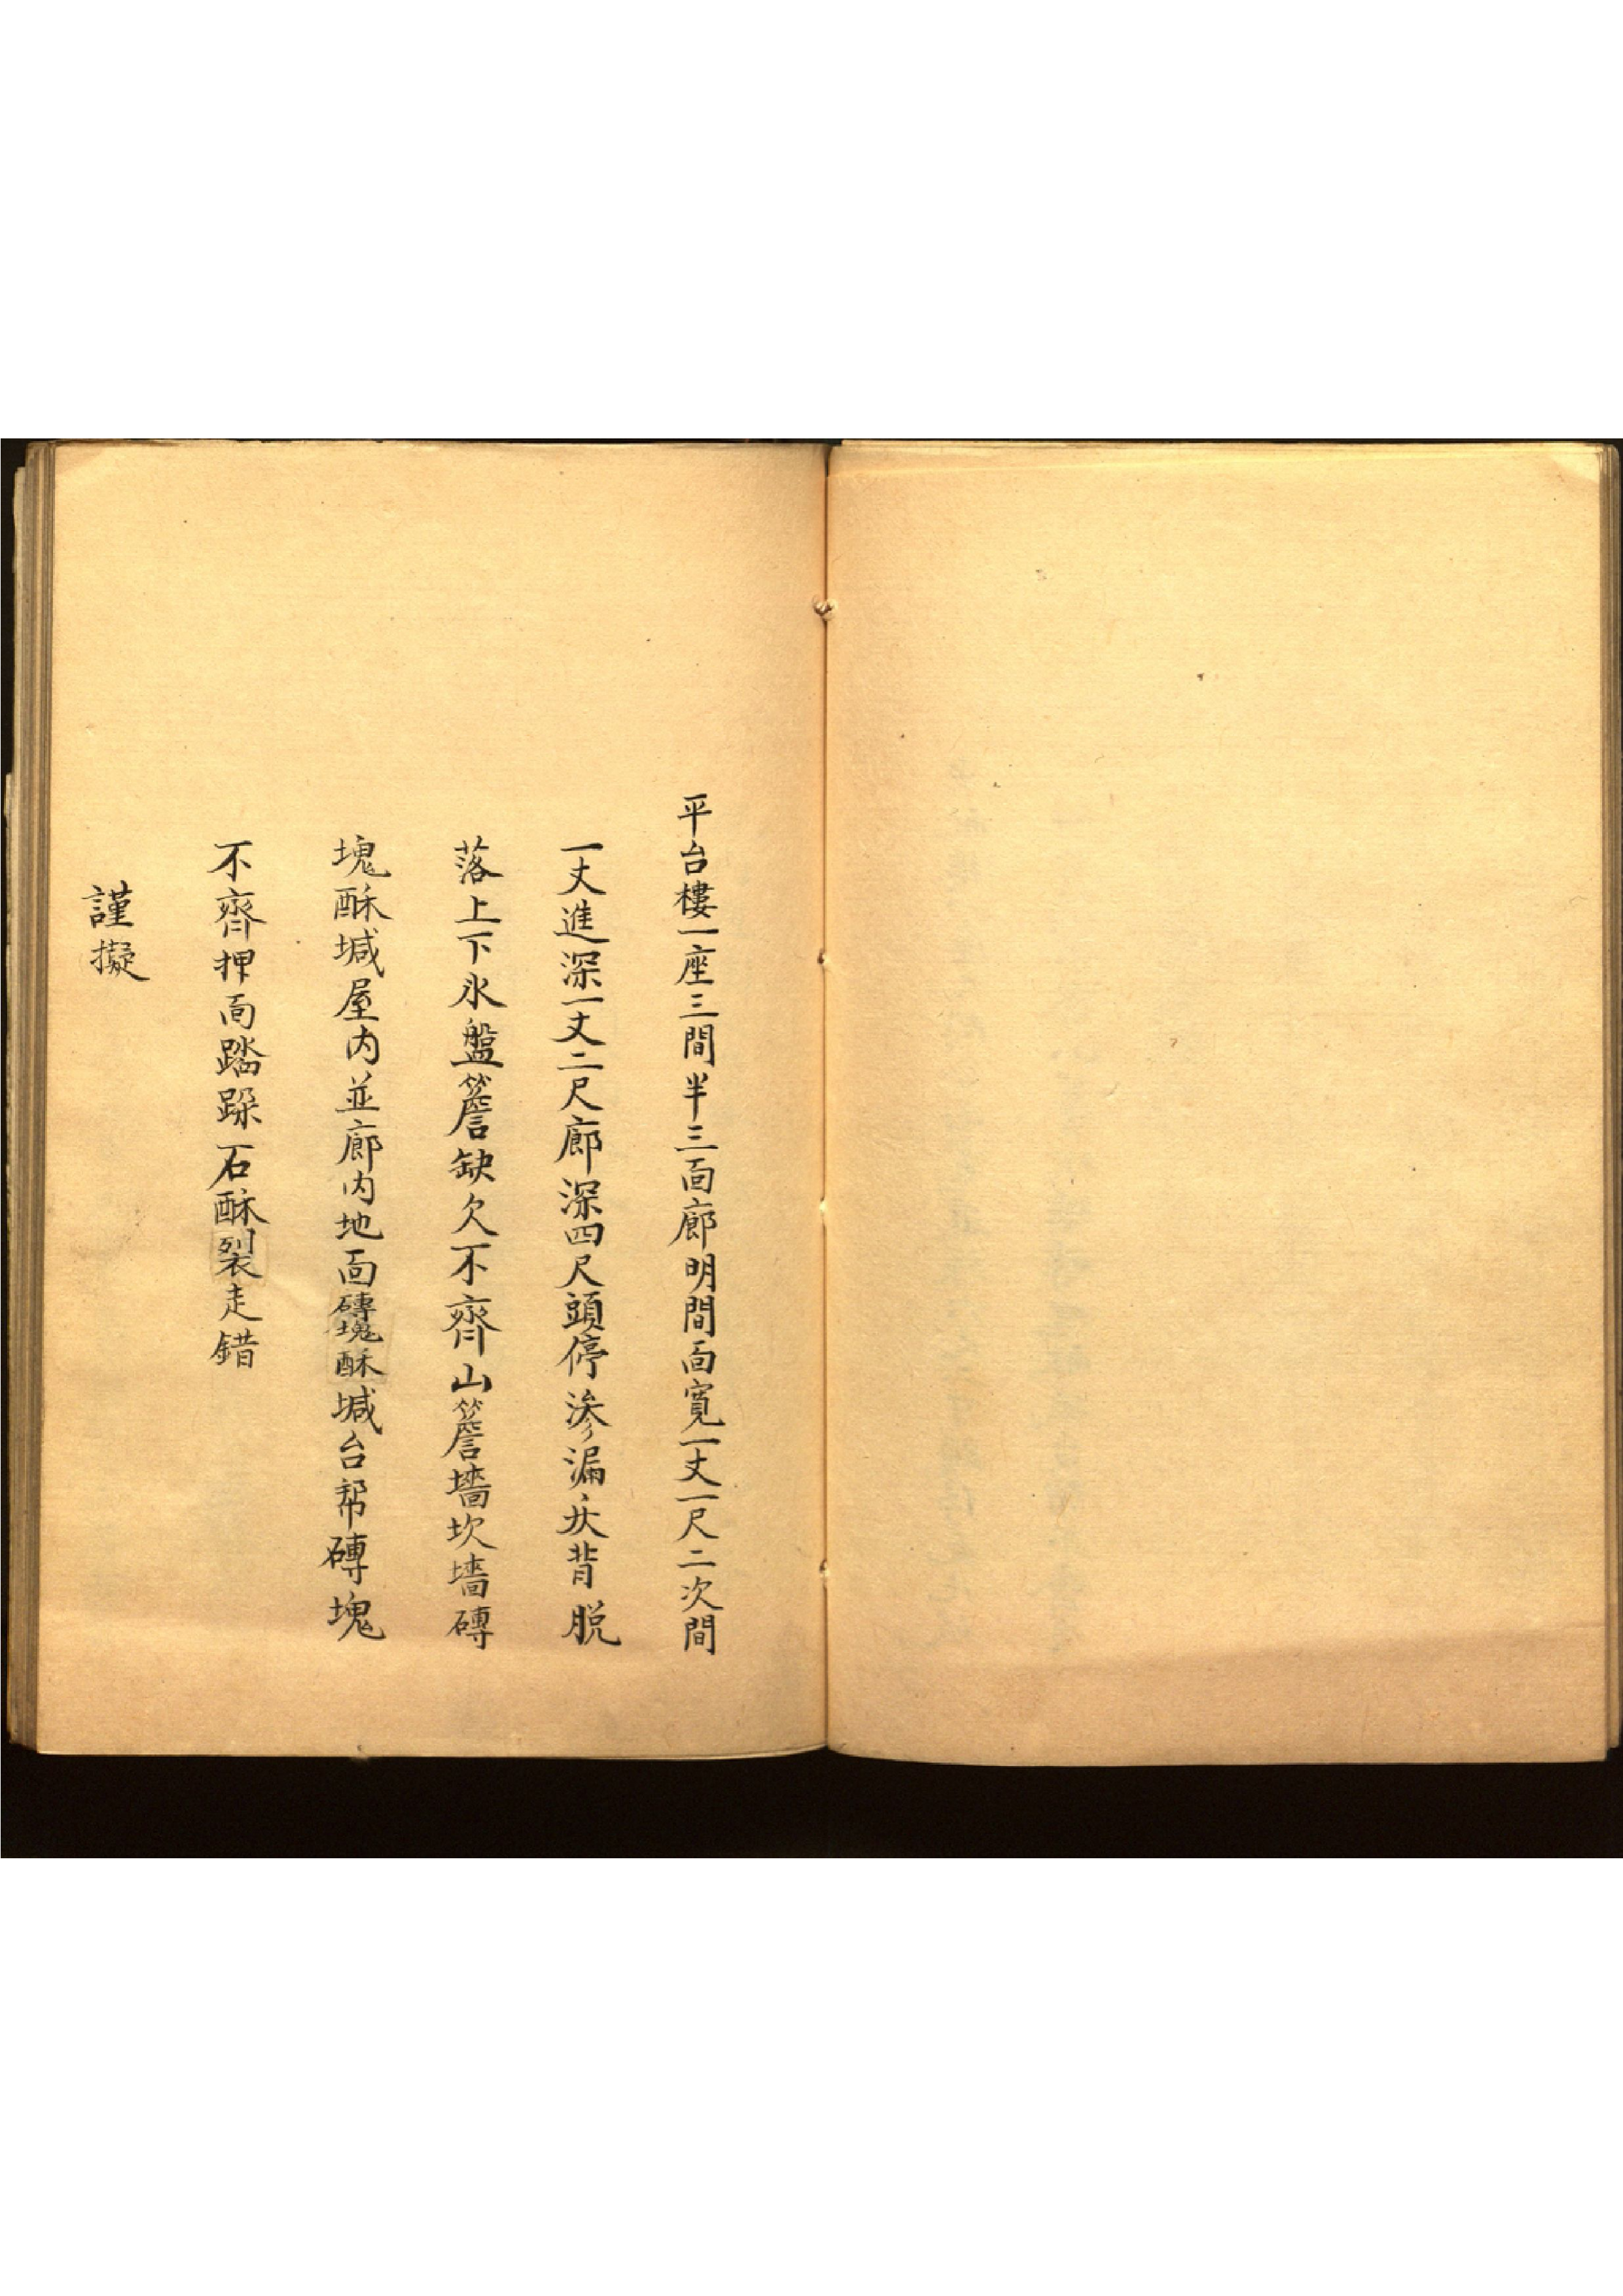 平台樓一座三間半三面廊明間面寬一丈一尺二次間
一丈進深一丈二尺廊深四尺頭停滲漏灰背脱
落上下氷盤簷缺欠不齊山簷墻坎墻磚
塊酥堿屋内並廊内地面磚塊酥堿台帮磚塊
不齊押面踏跺石酥裂走錯
謹擬